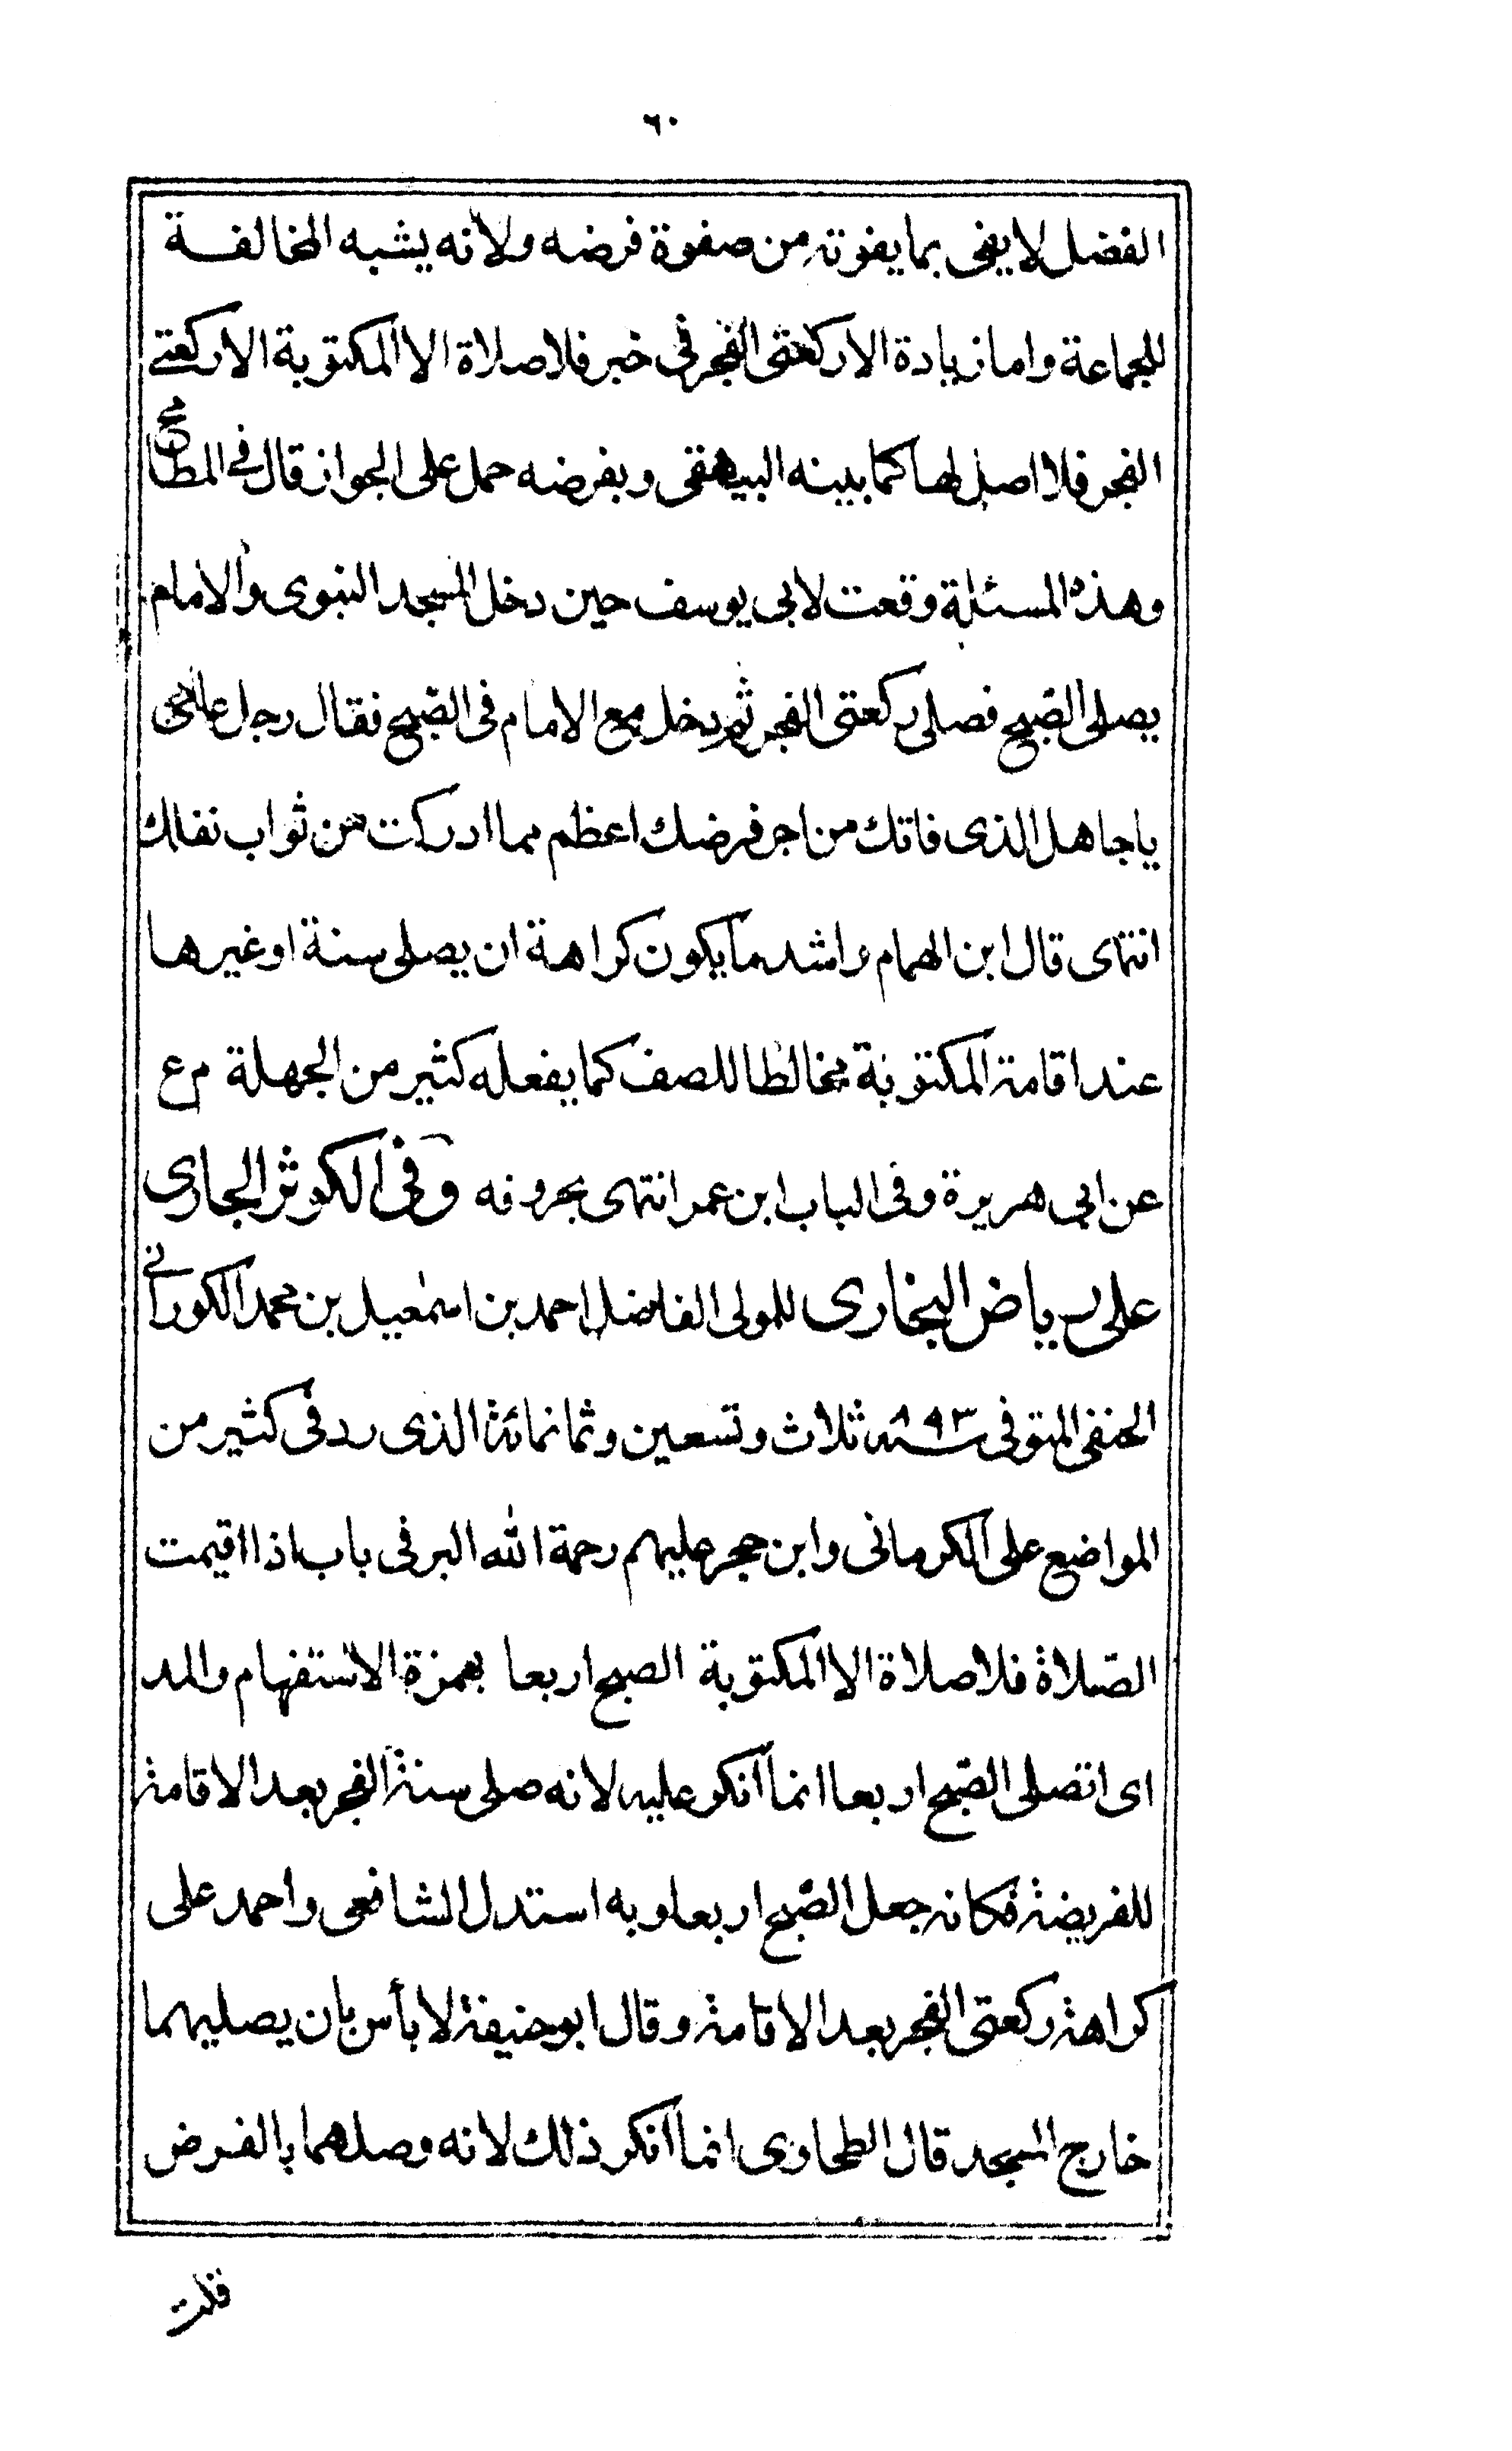 ٦٠
الفضل لا يفى بما يفوته من صفوة فرضه ولانه يشبه المخالفة
للجماعة واما زيادة الا ركعتى الفجر فى خبر فلا صلاة الا المكتوبة الا ركعتى
الفجر فلا اصل لها كما بينه البيهقى وبفرضه حمل على الجواز قال فى المطامح
وهذه المسئلة وقعت لابى يوسف حين دخل المسجد النبوى والامام
يصلى الصبح فصلى ركعتى الفجر ثم دخل مع الامام فى الصبح فقال رجل عامى
يا جاهل الذى فاتك من اجر فرضك اعظم مما ادركت من ثواب نفلك
انتهى قال ابن الهمام واشد ما يكون كراهة ان يصلى سنة او غيرها
عند اقامة المكتوبة مخالطا للصف كما يفعله كثير من الجهلة م ع
عن ابى هريرة وفى الباب ابن عمر انتهى بحروفه وفى الكوثر الجارى
على رياض البخارى للمولى الفاضل احمد بن اسمعيل بن محمد الكورانى
الحنفى المتوفى سنة ٨٩٣ ثلاث وتسعين وثمانمائة الذى رد فى كثير من
المواضع على الكرمانى وابن حجر عليهم رحمة الله البر فى باب اذا اقيمت
الصلاة فلا صلاة الا المكتوبة الصبح اربعا بهمزة الاستفهام والمد
اى اتصلى الصبح اربعا انما انكر عليه لانه صلى سنة الفجر بعد الاقامة
للفريضة فكانه جعل الصبح اربعا وبه استدل الشافعى واحمد على
كراهة ركعتى الفجر بعد الاقامة وقال ابو حنيفة لا بأس بان يصليهما
خارج المسجد قال الطحاوى انما انكر ذلك لانه وصلهما بالفرض
قلت